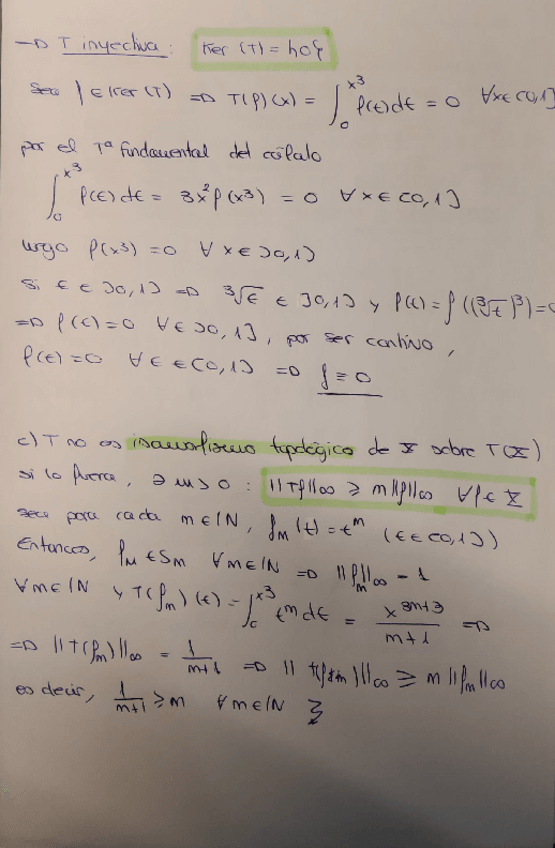 → T inyectiva: Ker (T) = {0}
Sea f ∈ Ker (T) ⇒ T(f)(x) = ∫₀^{x³} f(t)dt = 0 ∀x∈[0,1]
por el Tª fundamental del cálculo
∫₀^{x³} f(t)dt = 3x² f(x³) = 0 ∀ x ∈ [0,1]
luego f(x³) = 0 ∀ x ∈ ]0,1]
Si t ∈ ]0,1] ⇒ ∛t ∈ ]0,1] y f(t) = f((∛t)³) = 0
⇒ f(t) = 0 ∀ ∈ ]0,1], por ser continuo,
f(t) = 0 ∀ t ∈ [0,1] ⇒ f ≡ 0
c) T no es isomorfismo topológico de X sobre T(X)
si lo fuera, ∃ m > 0 : ||Tf||∞ ≥ m ||f||∞ ∀f ∈ X
sea para cada m∈ℕ, f_m(t) = t^m (t ∈ [0,1])
Entonces, f_m ∈ S_m ∀m∈ℕ ⇒ ||f_m||∞ = 1
∀m∈ℕ y T(f_m)(t) = ∫₀^{x³} t^m dt = x^{3m+3}/(m+1) ⇒
⇒ ||T(f_m)||∞ = 1/(m+1) ⇒ || T(f_m)||∞ ≥ m ||f_m||∞
es decir, 1/(m+1) ≥ m ∀m∈ℕ